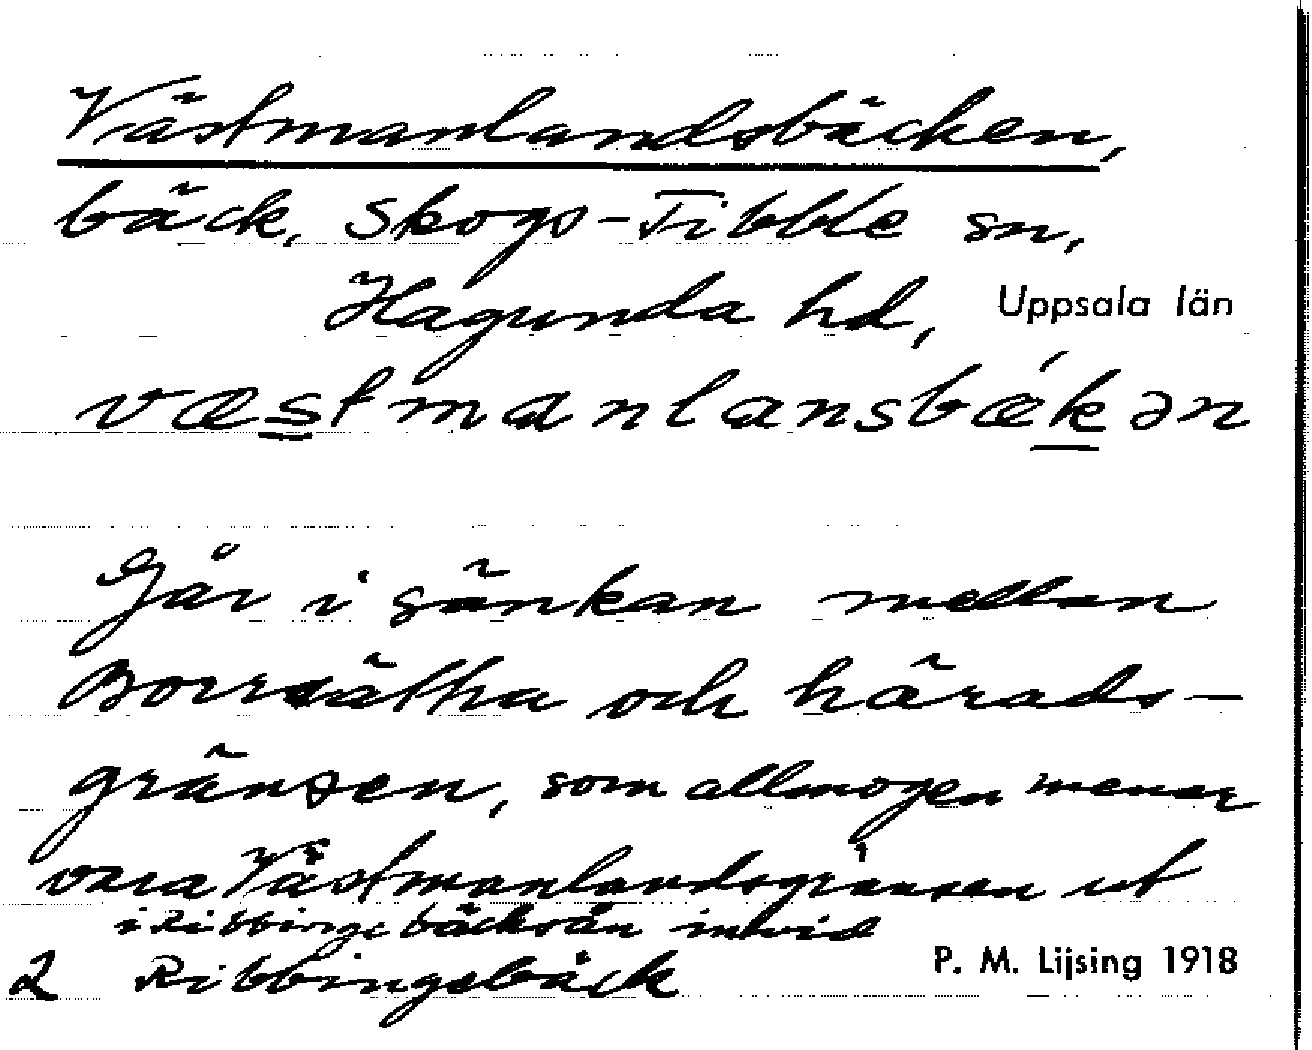 Västmanlandsbäcken,
bäck, Skogs-Tibble sn,
Hagunda hd, Uppsala län
væstmanlansbǽkən
Går i sänkan mellan
Borrsätha och härads-
gränsen, som allmogen menar
vara Västmanlandsgränsen ut
i Ribbingebäcksån invid
2 Ribbingsbäck P. M. Lijsing 1918